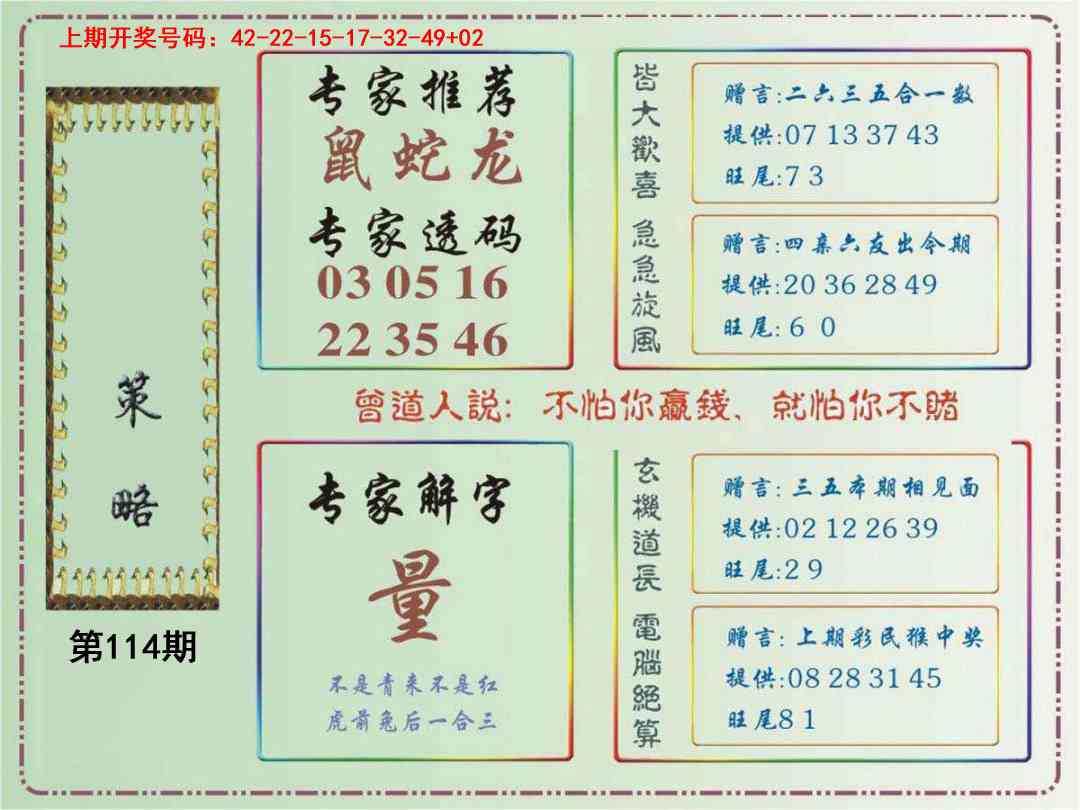 上期开奖号码：42-22-15-17-32-49+02
策
略
第114期
专家推荐
鼠蛇龙
专家透码
03 05 16
22 35 46
皆大歡喜
赠言:二六三五合一数
提供:07 13 37 43
旺尾:7 3
急急旋風
赠言:四亲六友出今期
提供:20 36 28 49
旺尾:6 0
曾道人説：不怕你贏錢、就怕你不賭
专家解字
量
不是青来不是红
虎前兔后一合三
玄機道長
赠言:三五本期相见面
提供:02 12 26 39
旺尾:2 9
電腦絕算
赠言:上期彩民猴中奖
提供:08 28 31 45
旺尾8 1